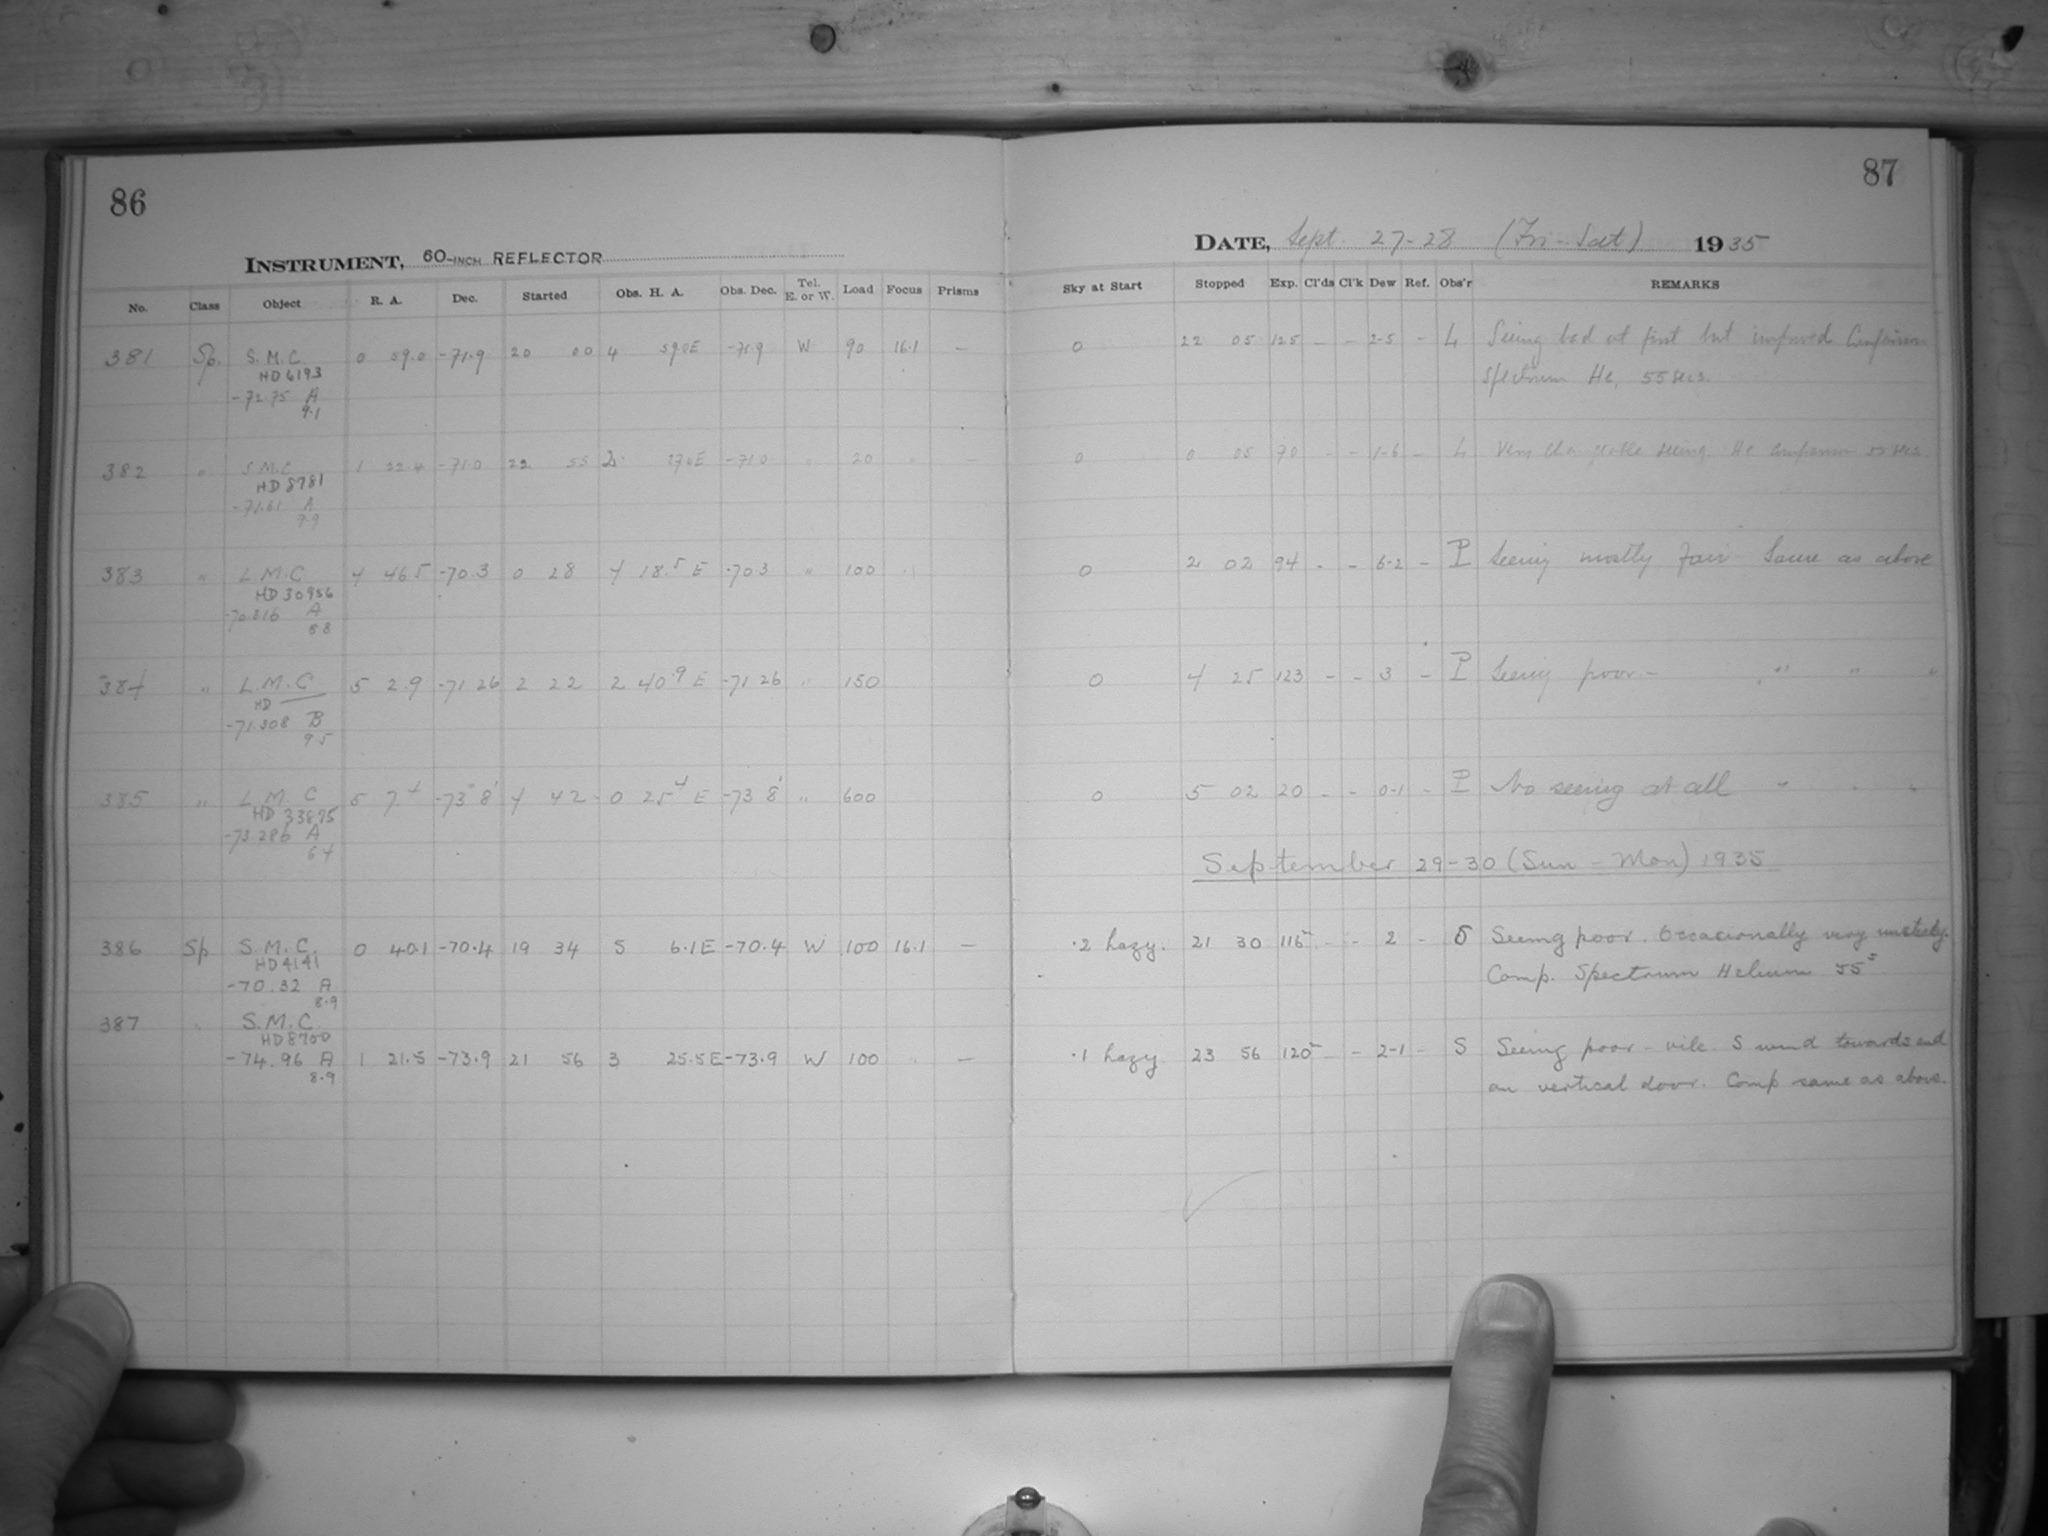 86
INSTRUMENT, 60-INCH REFLECTOR
No. Class Object R. A. Dec. Started Obs. H. A. Obs. Dec. Tel. E. or W. Load Focus Prisms
381 Sp. S.M.C. 0 59.0 -71.9 20 00 4 59.0E -71.9 W 90 16.1 —
HD 6193
-72.75 A
9.1
382 " S.M.C. 1 22.4 -71.0 22 55 2 27.6E -71.0 " 20 " —
HD 8781
-71.61 A
9.9
383 " L.M.C 4 46.5 -70.3 0 28 4 18.5 E -70.3 " 100 "
HD 30956
-70.316 A
8.8
384 " L.M.C. 5 2.9 -71 26 2 22 2 40.9 E -71 26 " 150
HD —
-71.308 B
9.5
385 " L.M.C 5 7.4 -73° 8' 4 42 0 25.4 E -73 8' " 600
HD 33875
-73.286 A
6.4
386 Sp S.M.C. 0 40.1 -70.4 19 34 5 6.1E -70.4 W 100 16.1 —
HD 4141
-70.32 A
8.9
387 " S.M.C.
HD 8700
-74.96 A 1 21.5 -73.9 21 56 3 25.5E -73.9 W 100 " —
8.9
87
DATE, Sept. 27-28 (Fri-Sat) 1935
Sky at Start Stopped Exp. Cl'ds Cl'k Dew Ref. Obs'r REMARKS
0 22 05 125 - - 2-5 - L Seeing bad at first but improved Comparison
Spectrum He, 55 secs.
0 0 05 70 - - 1-6 - L Very changeable seeing. He Comparison 55 secs.
0 2 02 94 - - 6-2 - P Seeing mostly fair Same as above
0 4 25 123 - - 3 - P Seeing poor - " " "
0 5 02 20 - - 0-1 - P No seeing at all " " "
September 29-30 (Sun - Mon) 1935
.2 hazy. 21 30 116 - - 2 - S Seeing poor. Occasionally very unsteady.
Comp. Spectrum Helium 55s
.1 hazy. 23 56 120 - - 2-1 - S Seeing poor - vile. S wind towards end
on vertical door. Comp same as above.